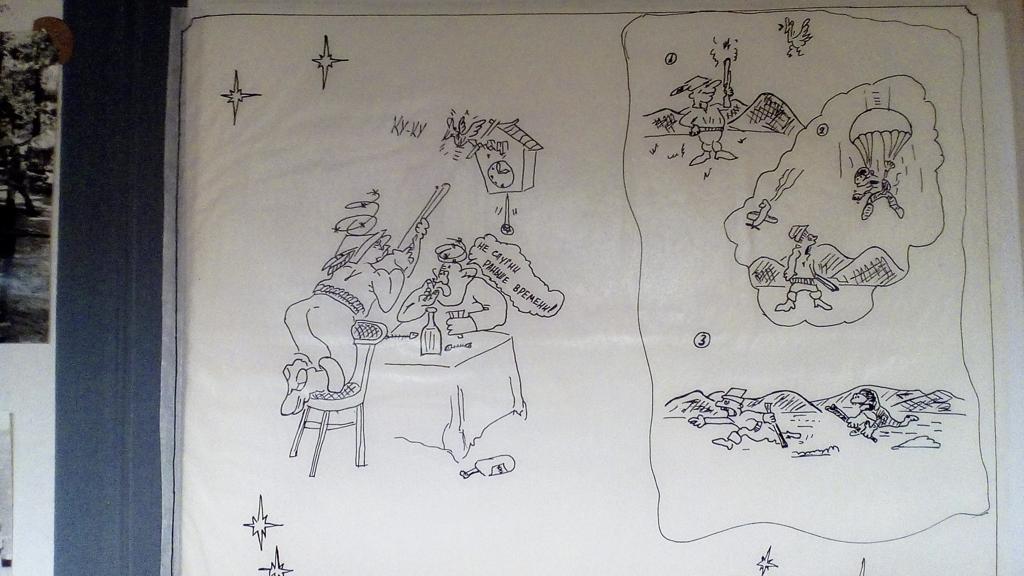 КУ-КУ
НЕ СПУГНИ
РАНЬШЕ ВРЕМЕНИ!
1
2
3